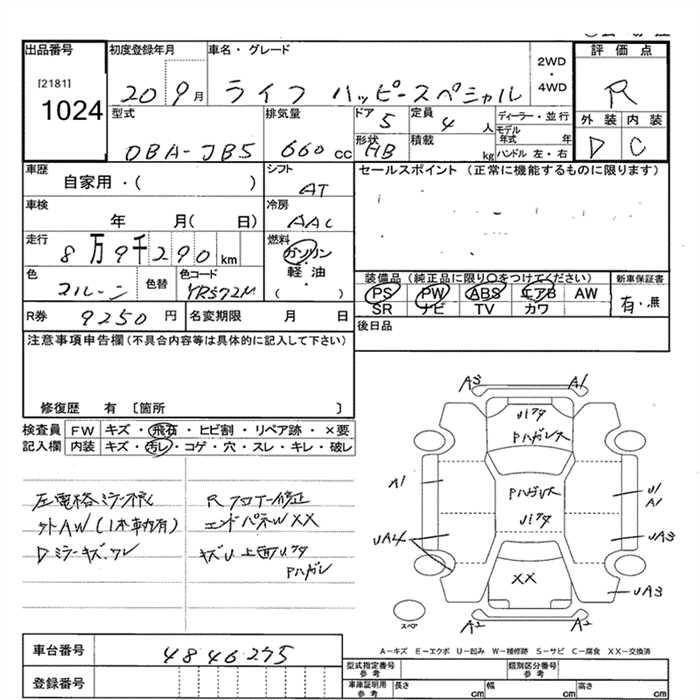 出品番号 初度登録年月 車名・グレード 2WD ・ 4WD 評価点
[2181]
1024
20 9月 ライフ ハッピースペシャル R
型式 排気量 ドア 5 定員 4 人 ディーラー・並行 外装 内装
DBA-JB5 660 cc 形状 HB 積載 kg モデル年式 年 ハンドル 左・右 D C
車歴 自家用・( ) シフト AT セールスポイント (正常に機能するものに限ります)
車検 年 月( 日) 冷房 AAC
走行 8万9千290km 燃料 ガソリン・軽油・( )
色 色替 色コード YR572M
装備品 (純正品に限り〇をつけてください) 新車保証書
PS PW ABS エアB AW 有・無
SR ナビ TV カワ
R券 9250 円 名変期限 月 日 後日品
注意事項申告欄(不具合内容等は具体的に記入して下さい)
修復歴 有〔箇所 〕
検査員 FW キズ・飛石・ヒビ割・リペア跡・×要
記入欄 内装 キズ・汚レ・コゲ・穴・スレ・キレ・破レ
左電格ミラー不良 Rフロアー修正
社外AW(1本車内有) エンドパネルW XX
Dミラーキズ、ワレ キズU上面
Pハガレ
A3 A1
Pハガレ大
A1 Pハガレ大 U1
A1
UA4 UA3
XX UA3
スペ A2 A2
A-キズ E-エクボ U-凹み W-補修跡 S-サビ C-腐食 XX-交換済
車台番号 4846275 型式指定番号 参考 類別区分番号 参考
登録番号 車庫証明用 参考 長さ cm 幅 cm 高さ cm